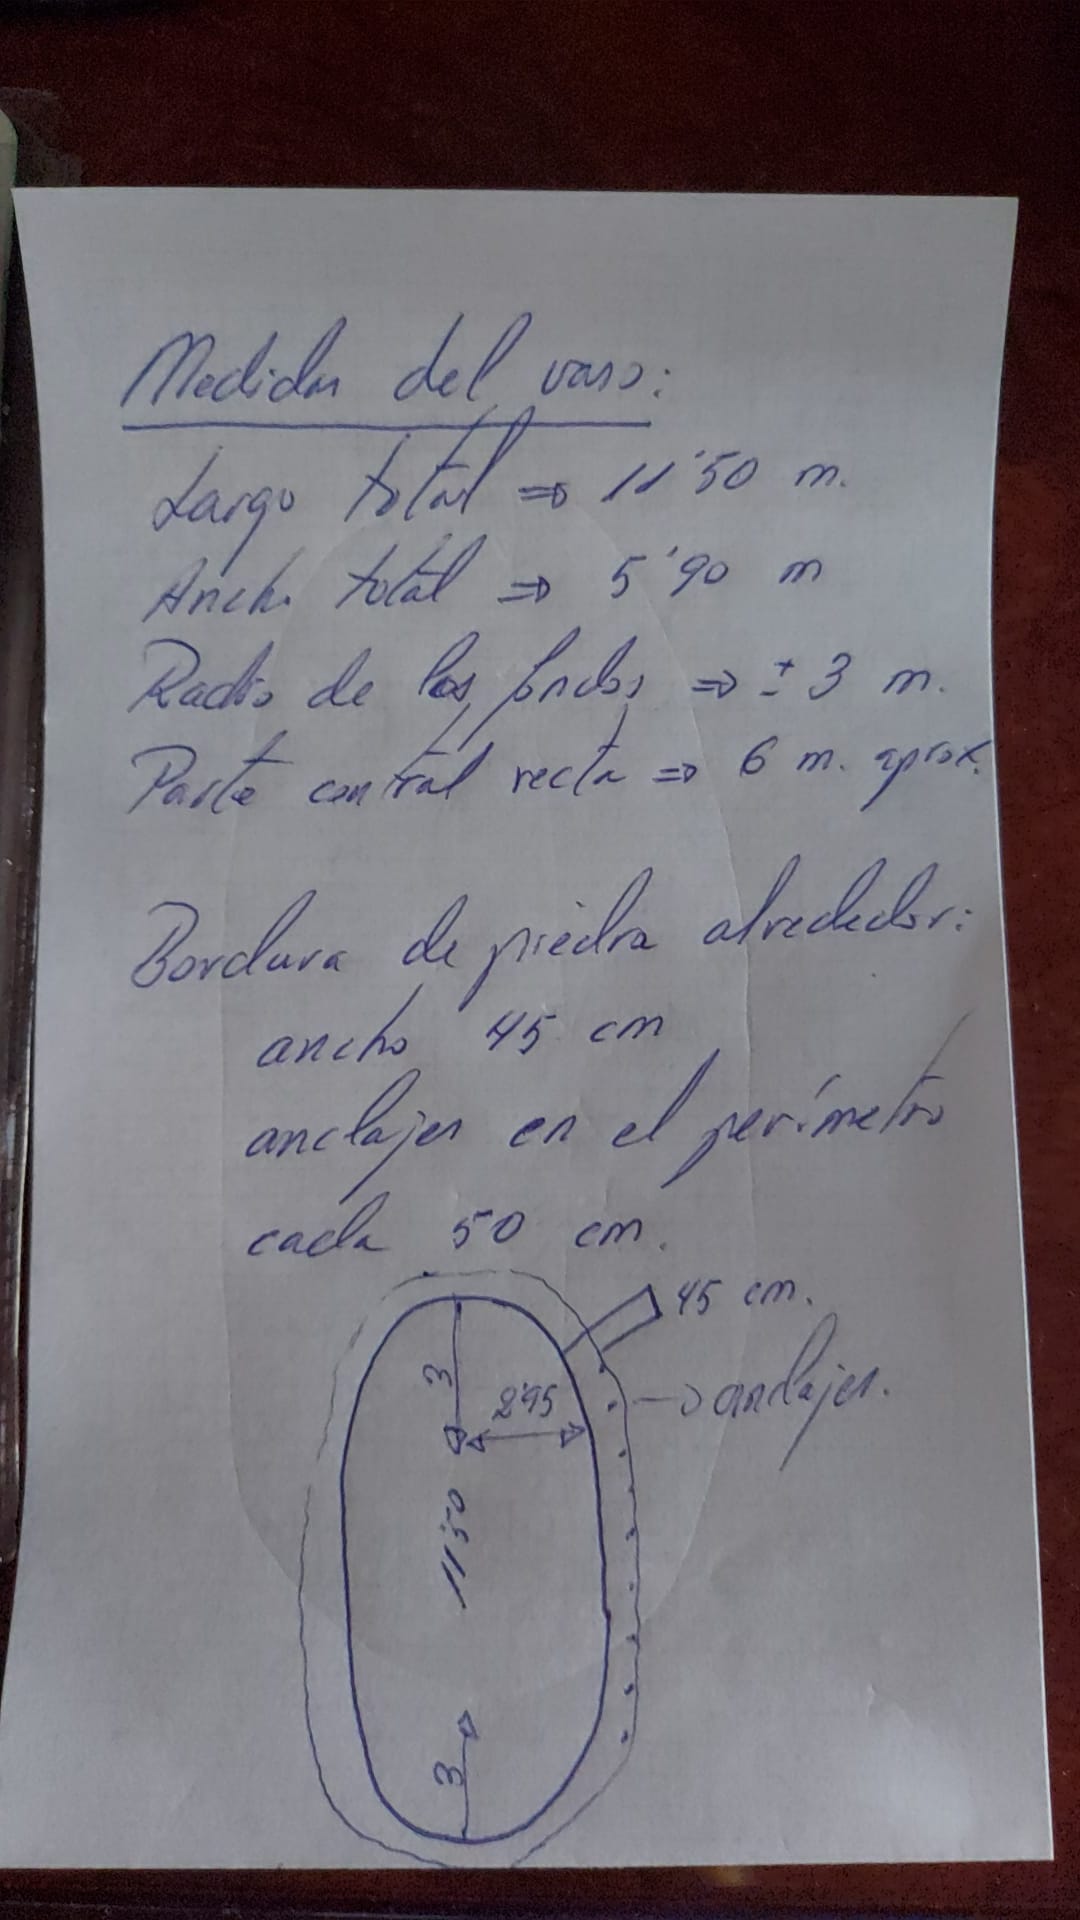 Medidas del vaso:
Largo total ⇒ 11'50 m.
Ancho total ⇒ 5'90 m
Radio de los fondos ⇒ ± 3 m.
Parte central recta ⇒ 6 m. aprox.
Bordura de piedra alrededor:
ancho 45 cm
anclajes en el perímetro
cada 50 cm.
45 cm.
3
2'95
→ anclajes.
11'50
3